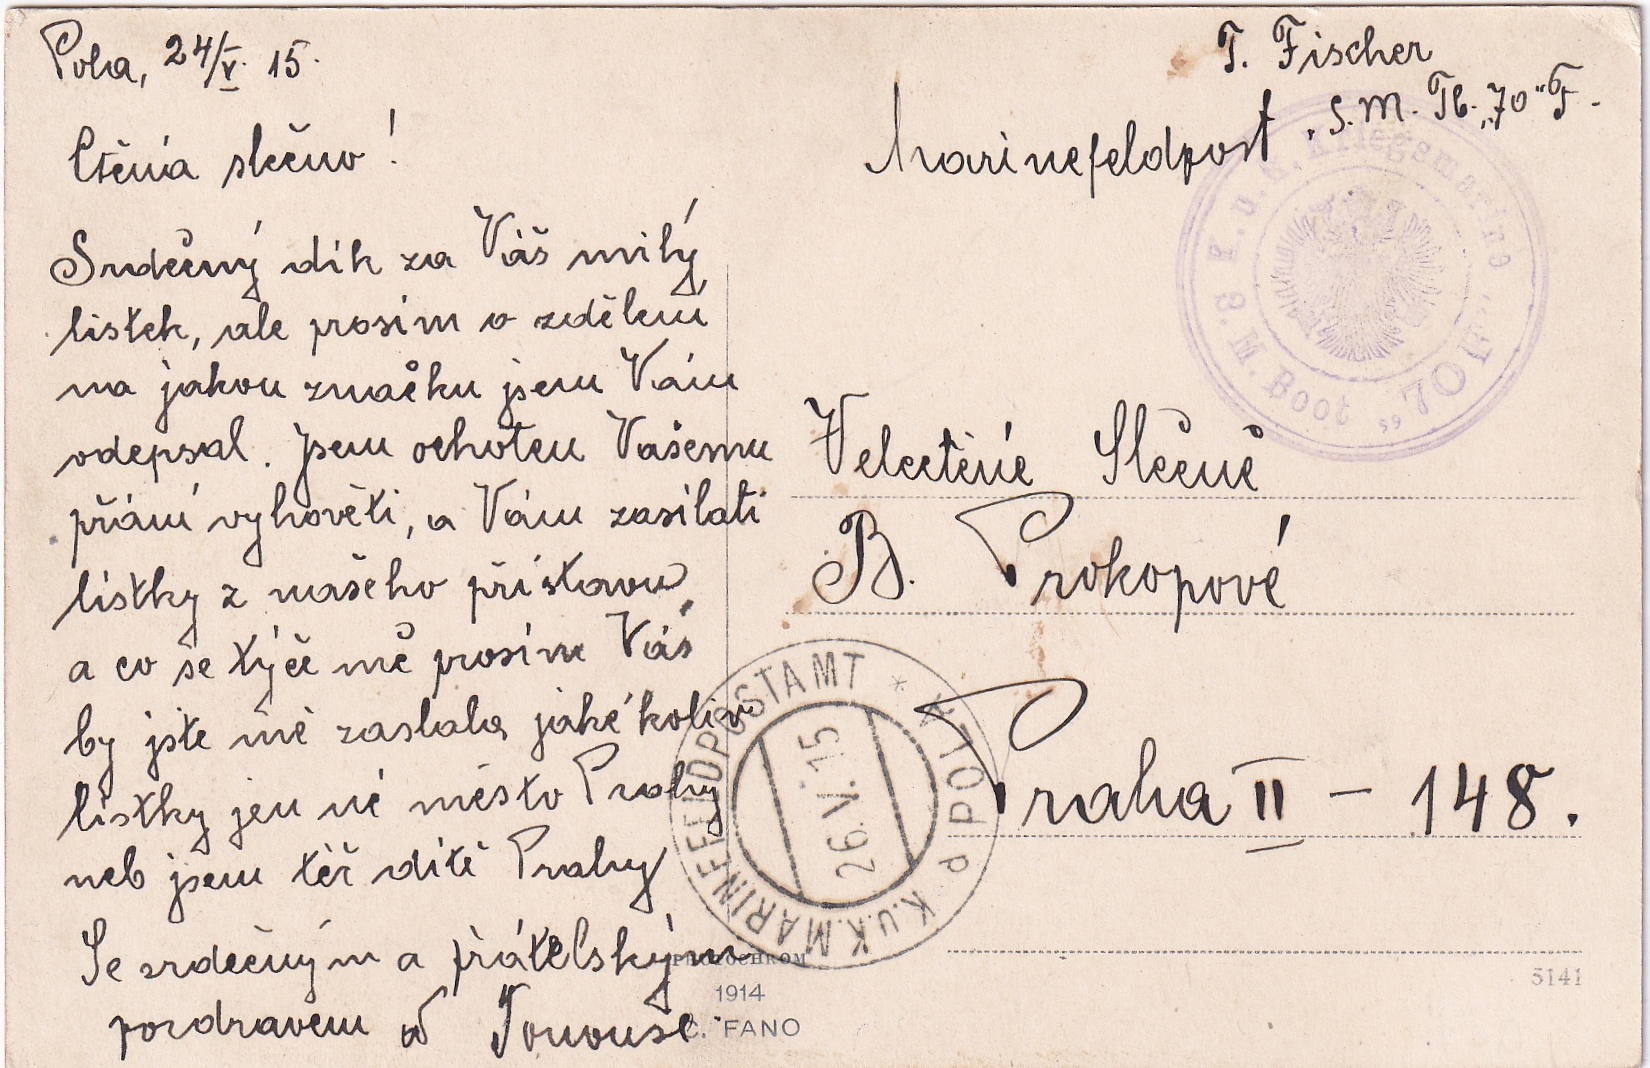 Pola, 24/V. 15.
Ctěná slečno!
Srdečný dík za Váš milý
lístek, ale prosím o zdělení
na jakou značku jsem Vám
odepsal. Jsem ochoten Vašemu
přání vyhověti, a Vám zasílati
lístky z našeho přístavu,
a co se týče mě prosím Vás
by jste mě zaslala jakékoliv
lístky jen né město Prahy
neb jsem též dítě Prahy
Se srdečným a přátelským
pozdravem
T. Fischer
S. M. Tb. „70" F.
Marinefeldpost
K. u. K. Kriegsmarine
S. M. Boot „70 F"
Velectěné Slečně
B. Prokopové
Praha II – 148.
K.U.K. MARINEFELDPOSTAMT * POLA
26.V.15
PHOTOCHROM
1914
C. FANO
5141